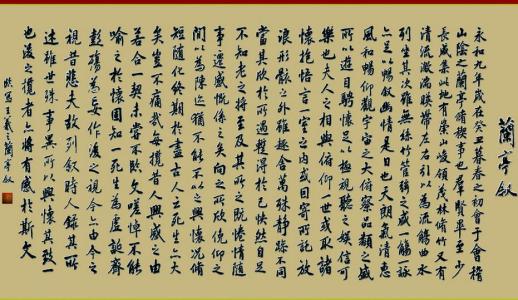 蘭亭叙
永和九年歲在癸丑暮春之初會于會稽
山陰之蘭亭脩稧事也羣賢畢至少
長咸集此地有崇山峻領茂林脩竹又有
清流激湍暎帶左右引以為流觴曲水
列坐其次雖無絲竹管絃之盛一觴一詠
亦足以暢叙幽情是日也天朗氣清惠
風和暢仰觀宇宙之大俯察品類之盛
所以遊目騁懷足以極視聽之娛信可
樂也夫人之相與俯仰一世或取諸
懷抱悟言一室之內或因寄所託放
浪形骸之外雖趣舍萬殊靜躁不同
當其欣於所遇蹔得於己怏然自足
不知老之將至及其所之既惓情隨
事遷感慨係之矣向之所欣俛仰之
間以為陳迹猶不能不以之興懷況脩
短隨化終期於盡古人云死生亦大
矣豈不痛哉每攬昔人興感之由
若合一契未嘗不臨文嗟悼不能
喻之於懷固知一死生為虛誕齊
彭殤為妄作後之視今亦由今之
視昔悲夫故列叙時人錄其所
述雖世殊事異所以興懷其致一
也後之攬者亦將有感於斯文
臨寫王羲之蘭亭叙